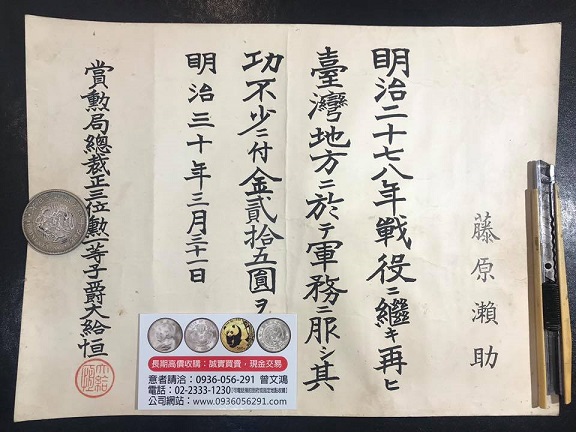 藤原瀬助
明治二十七八年戰役ニ繼キ再ヒ
臺灣地方ニ於テ軍務ニ服シ其
功不少ニ付金貳拾五圓ヲ
明治三十年三月三十一日
賞勲局總裁正三位勲一等子爵大給恒
長期高價收購：誠實買賣，現金交易
意者請洽：0936-056-291 曾文鴻
電話：02-2333-1230
公司網站：www.0936056291.com